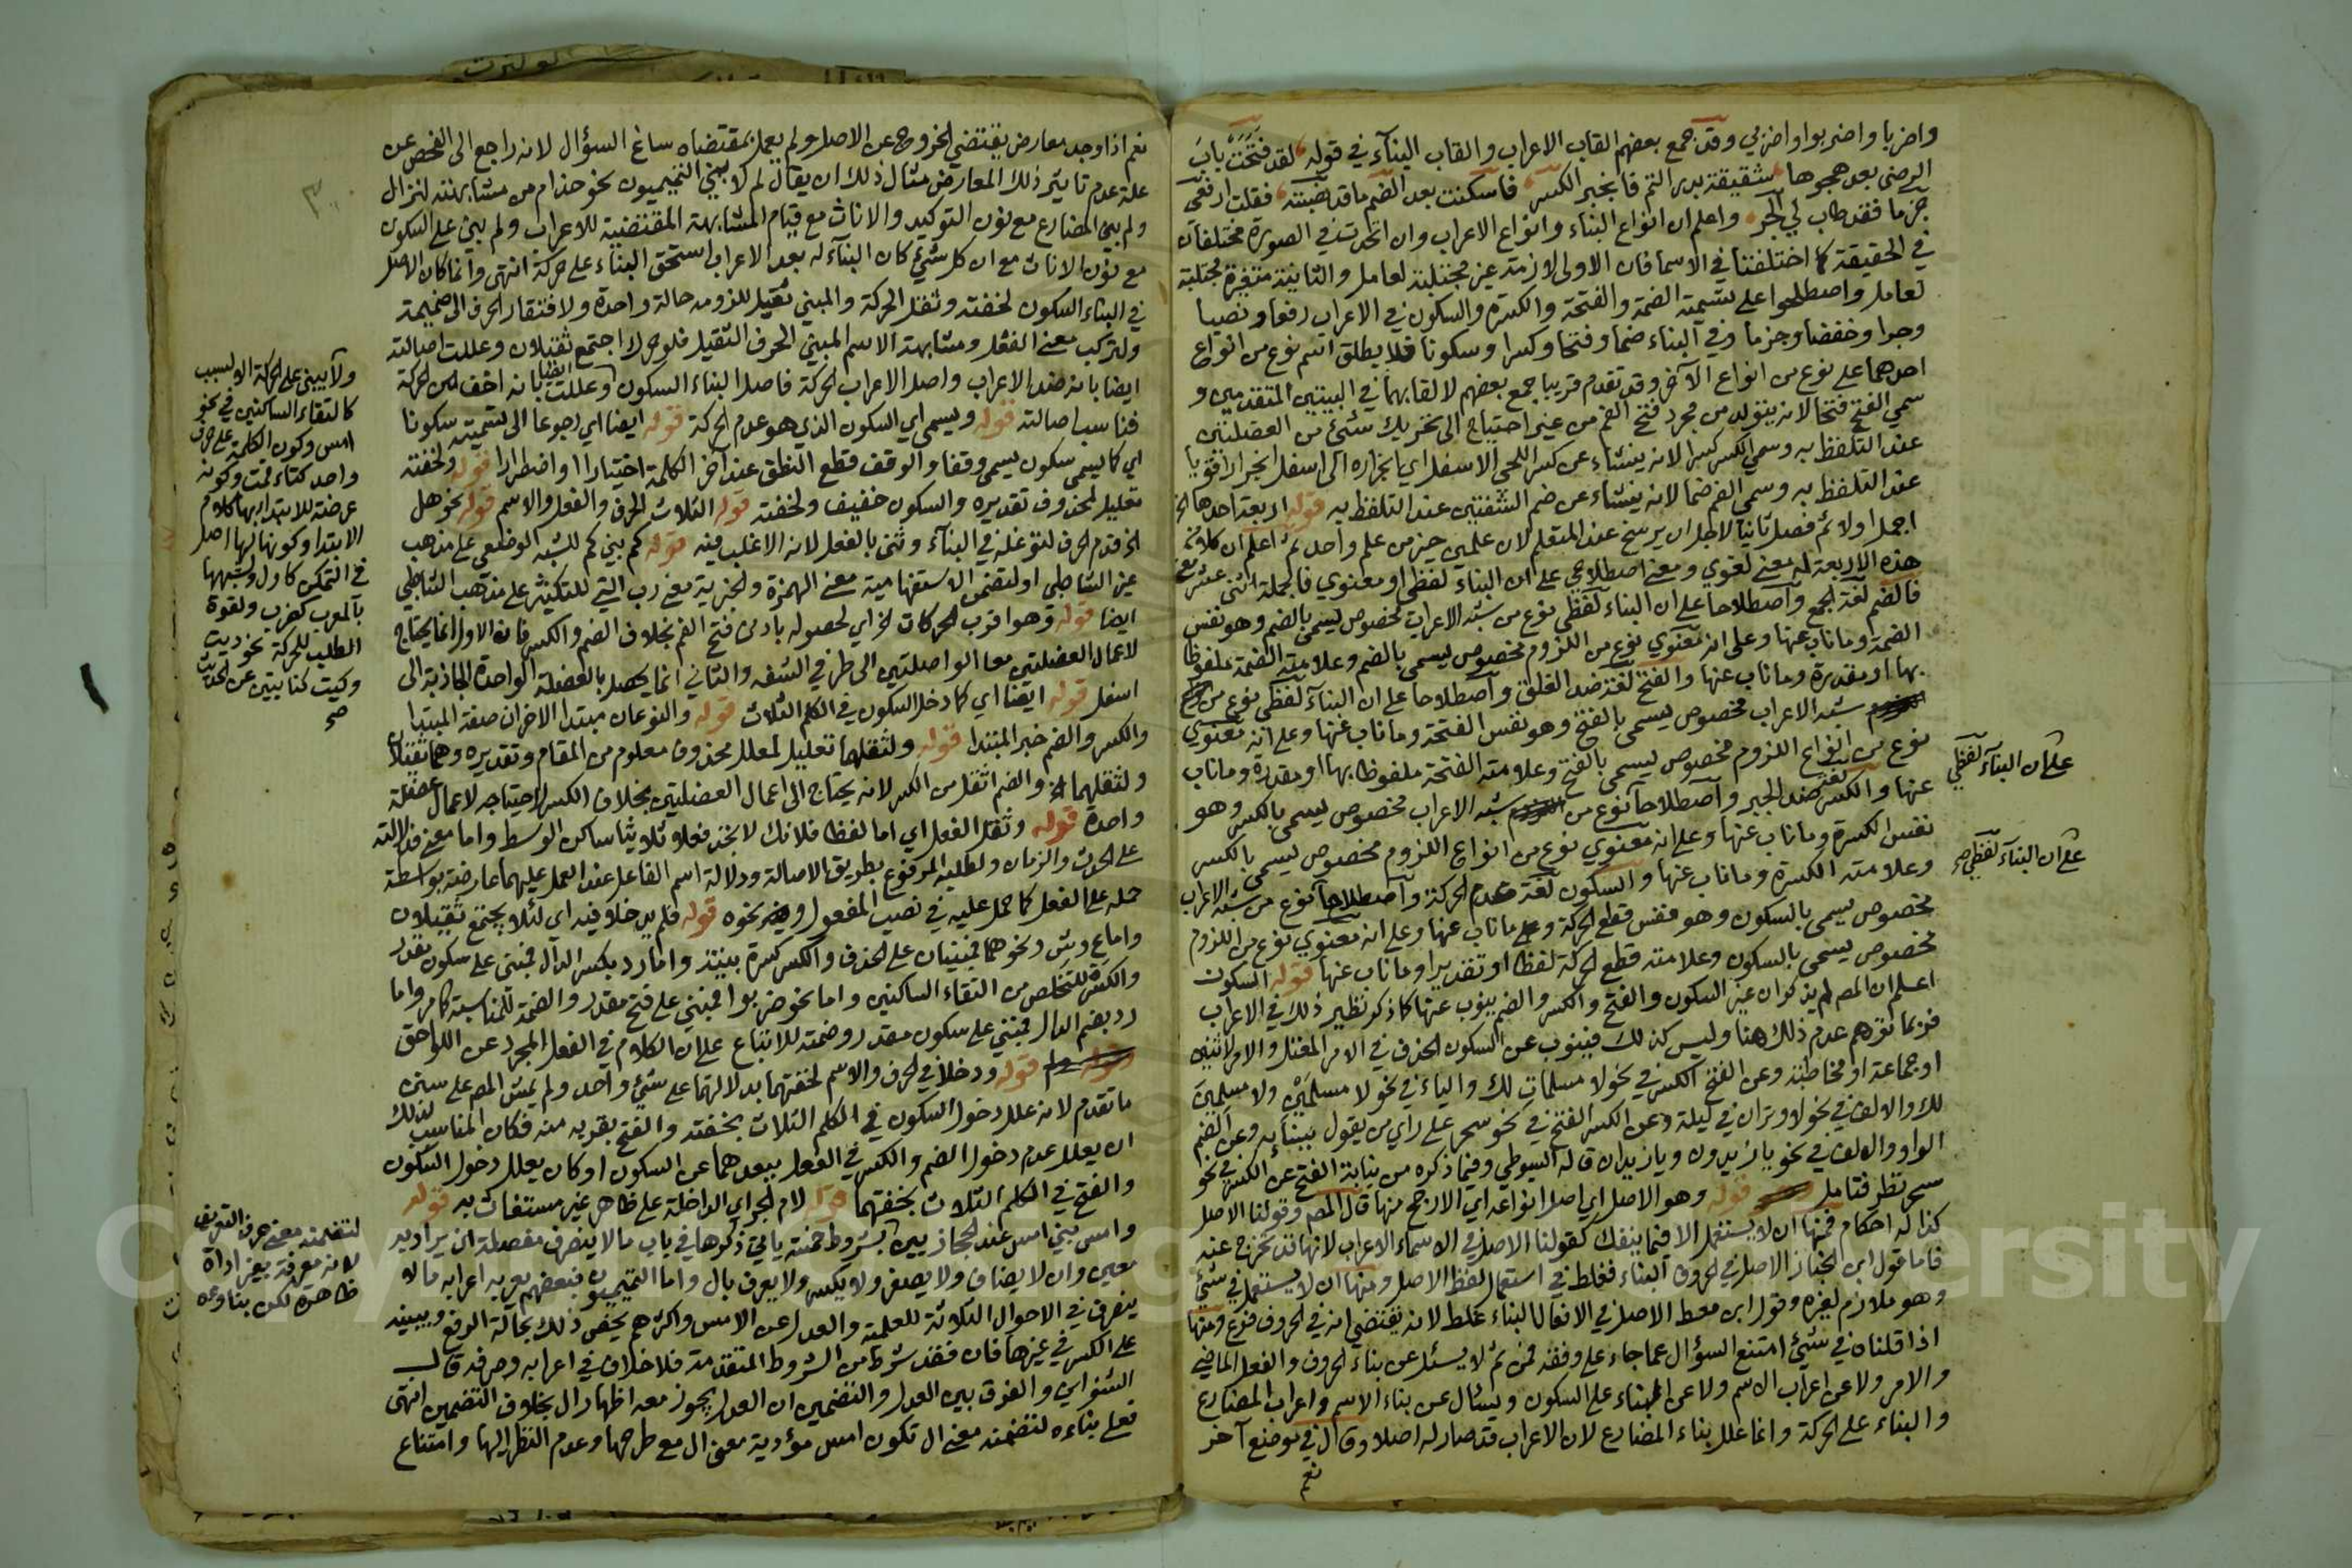 واضربا واضربوا واضربي وقد جمع بعضهم القاب الاعراب والقاب البنآء في قوله لقد فتحت باب
الرضى بعد هجوها شقيقة بدر التم فانجبر الكسر فاسكنت بعد الضم ما قد نصبته فقلت ارفعي
جزما فقد طاب لي الجر واعلم ان انواع البناء وانواع الاعراب وان اتحدت في الصورة مختلفان
في الحقيقة كما اختلفتا في الاسما فان الاولى لازمة غير مجتلبة لعامل والثانية متغيرة مجتلبة
لعامل واصطلحوا على تسمية الضمة والفتحة والكسرة والسكون في الاعراب رفعا ونصبا
وجرا وخفضا وجزما وفي البناء ضما وفتحا وكسرا وسكونا فلا يطلق اسم نوع من انواع
احدهما على نوع من انواع الآخر وقد تقدم قريبا جمع بعضهم لالقابهما في البيتين المتقدمين و
سمي الفتح فتحا لانه يتولد من مجرد فتح الفم من غير احتياج الى تحريك شئ من العضلتين
عند التلفظ به وسمي الكسر كسرا لانه ينشاء عن كسر اللحى الاسفل اي انجراره الى اسفل انجرارا قويا
عند التلفظ به وسمي الضم ضما لانه ينشاء عن ضم الشفتين عند التلفظ به قوله اربعة احدها الخ
اجمل اولا ثم فصل ثانيا لاجل ان يرسخ عند المتعلم لان علمين خير من علم واحد ثم اعلم ان كلا من
هذه الاربعة له معنى لغوي ومعنى اصطلاحي على ان البناء لفظي او معنوي فالجملة اثنى عشر معنى
فالضم لغة الجمع واصطلاحا على ان البناء لفظي نوع من شبه الاعراب مخصوص يسمى بالضم وهو نفس
الضمة وماناب عنها وعلى انه معنوي نوع من اللزوم مخصوص يسمى بالضم وعلامته الضمة ملفوظا
بها او مقدرة وماناب عنها والفتح لغة ضد الغلق واصطلاحا على ان البنآء لفظي نوع من
شبه الاعراب مخصوص يسمى بالفتح وهو نفس الفتحة وماناب عنها وعلى انه معنوي
نوع من انواع اللزوم مخصوص يسمى بالفتح وعلامته الفتحة ملفوظا بها او مقدرة وماناب
عنها والكسر لغة ضد الجبر واصطلاحا نوع من شبه الاعراب مخصوص يسمى بالكسر وهو
نفس الكسرة وماناب عنها وعلى انه معنوي نوع من انواع اللزوم مخصوص يسمى بالكسر
وعلامته الكسرة وماناب عنها والسكون لغة عدم الحركة واصطلاحا نوع من شبه الاعراب
مخصوص يسمى بالسكون وهو نفس قطع الحركة وماناب عنها وعلى انه معنوي نوع من اللزوم
مخصوص يسمى بالسكون وعلامته قطع الحركة لفظا او تقديرا وماناب عنها قوله السكون
اعلم ان المص لم يذكر ان غير السكون والفتح والكسر والضم ينوب عنها كما ذكر نظير ذلك في الاعراب
فربما توهم عدم ذلك هنا وليس كذلك فينوب عن السكون الحذف في الامر المعتل والامر لاثنين
او جماعة او مخاطبة وعن الفتح الكسر في نحو لا مسلمات لك والياء في نحو لا مسلمَيْن ولا مسلمِين
لك والالف في نحو لا وتران في ليلة وعن الكسر الفتح في نحو سحر على راي من يقول ببنائه وعن الضم
الواو والالف في نحو يا زيدون ويا زيدان قاله السيوطي وفيما ذكره من نيابة الفتح عن الكسر في نحو
سحر نظر فتامل قوله وهو الاصل اي اصل انواعه اي الارجح منها قال المص وقولنا الاصل
كذا له احكام فمنها ان لا يستعمل الا فيما ينفك كقولنا الاصل في الاسماء الاعراب لانها قد تخرج عنه
فاما قول ابن الخباز الاصل في الحروف البناء فغلط في استعمال لفظ الاصل ومنها ان لا يستعمل في شئ
وهو ملازم لغيره وقول ابن معط الاصل في الافعال البناء غلط لانه يقتضي انه في الحروف فرع ومنها
اذا قلناه في شئ امتنع السؤال عما جاء على وفقه فمن ثم لا يسئل عن بناء الحروف والفعل الماضي
والامر ولا عن اعراب الاسم ولا عن البناء على السكون ويسال عن بناء الاسم واعراب المضارع
والبناء على الحركة وانما علل بناء المضارع لان الاعراب قد صار له اصلا وقال في موضع آخر
نعم
على ان البنآء لفظي
على ان البنآء لفظي صح
نعم اذا وجد معارض يقتضي الخروج عن الاصل ولم يعمل بمقتضاه ساغ السؤال لانه راجع الى الفحص عن
علة عدم تاثير ذلك المعارض مثال ذلك ان يقال لم لا يبني التميميون نحو حذام من مشابهته لنزال
ولم بني المضارع مع نون التوكيد والاناث مع قيام المشابهة المقتضية للاعراب ولم بني على السكون
مع نون الاناث مع ان كل شئ كان البنآء له بعد الاعراب استحق البناء على حركة انتهى وانما كان الاصل
في البناء السكون لخفته وثقل الحركة والمبني ثقيل للزومه حالة واحدة ولافتقار الحرف الى ضميمة
ولتركب معنى الفعل ومشابهة الاسم المبني الحرف الثقيل فلو حرك اجتمع ثقيلان وعللت اصالته
ايضا بانه ضد الاعراب واصل الاعراب الحركة فاصل البناء السكون وعللت ايضا بانه اخف من الحركة
فناسب اصالته قوله ويسمى اي السكون الذي هو عدم الحركة قوله ايضا اي رجوعا الى تسميته سكونا
اي كما يسمى سكون يسمى وقفا والوقف قطع النطق عند آخر الكلمة اختيارا او اضطرارا قوله ولخفته
تعليل لمحذوف تقديره والسكون خفيف ولخفته قوله الثلاث الحرف والفعل والاسم قوله نحو هل
الخ قدم الحرف لتوغله في البنآء وثنى بالفعل لانه الاغلب فيه قوله كم بني كم للشبه الوضعي على مذهب
غير الشاطبي او لتضمن الاستفهامية معنى الهمزة والخبرية معنى رب التي للتكثير على مذهب الشاطبي
ايضا قوله وهو اقرب الحركات الخ اي لحصوله بادنى فتح الفم بخلاف الضم والكسر فان الاول انما يحتاج
لاعمال العضلتين معا الواصلتين الى طرفي الشفه والثاني انما يحصل بالعضلة الواحدة الجاذبة الى
اسفل قوله ايضا اي كما دخل السكون في الكلم الثلاث قوله والنوعان مبتدا الاخران صفة المبتدا
والكسر والضم خبر المبتدا قوله ولثقلهما تعليل لمعلل محذوف معلوم من المقام وتقديره وهما ثقيلان
ولثقلهما الخ والضم اثقل من الكسر لانه يحتاج الى اعمال العضلتين بخلاف الكسر لاحتياجه لاعمال عضلة
واحدة قوله وثقل الفعل اي اما لفظا فلانك لا تجد فعلا ثلاثيا ساكن الوسط واما معنى فلدلالته
على الحدث والزمان ولطلبه المرفوع بطريق الاصالة ودلالة اسم الفاعل عند العمل عليهما عارضة بواسطة
حمله على الفعل كما حمل عليه في نصب المفعول ونحوه قوله فلم يدخلا فيه اي لئلا يجتمع ثقيلان
واما عِ وشِ ونحوهما فمبنيان على الحذف والكسر كسرة بنية واما رد بكسر الدال فمبني على سكون مقدر
والكسرة للتخلص من التقاء الساكنين واما نحو ضربوا فمبني على فتح مقدر والضمة للمناسبة كما مر واما
رد بضم الدال فمبني على سكون مقدر وضمته للاتباع على ان الكلام في الفعل المجرد عن اللواحق
قوله ودخلا في الحرف والاسم لخفتهما بدلالتهما على شئ واحد ولم يمش المص على سنن
ما تقدم لانه علل دخول السكون في الكلم الثلاث بخفته والفتح بقربه منه فكان المناسب لذلك
ان يعلل عدم دخول الضم والكسر في الفعل ببعدهما عن السكون او كان يعلل دخول السكون
والفتح في الكلم الثلاث بخفتهما قوله لام الجر اي الداخلة على ظاهر غير مستغاث به قوله
وامس بني امس عند الحجازيين بشروط خمسة ياتي ذكرها في باب ما لا ينصرف مفصلة ان يراد به
معين وان لا يضاف ولا يصغر ولا يكسر ولا يعرف بال واما التميميون فبعضهم يعربه اعراب ما لا
ينصرف في الاحوال الثلاثة للعلمية والعدل عن الامس واكثرهم يخص ذلك بحالة الرفع ويبنيه
على الكسر في غيرها فان فقد شرط من الشروط المتقدمة فلا خلاف في اعرابه وصرفه قال
الشنواني والفرق بين العدل والتضمين ان العدل يجوز معه اظهار ال بخلاف التضمين انتهى
فعلى بناءه لتضمنه معنى ال تكون امس مؤدية معنى ال مع طرحها وعدم النظر اليها وامتناع
ولا يبنى على الحركة الا لسبب
كالتقاء الساكنين في نحو
امس وكون الكلمة على حرف
واحد كتاء قمت وكونه
عرضة للابتدا بها كلام
الابتدا وكونها لها اصل
في التمكن كاول وشبهها
بالمعرب كضرب ولقوة
الطلب للحركة نحو ذيت
وكيت كنايتين عن الحديث
صح
لتضمنه معنى حرف التعريف
لانه معرفة بغير اداة
ظاهرة لكن بناوه